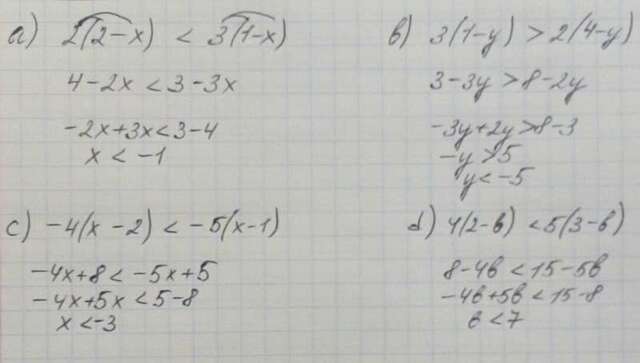 a) 2(2-x) < 3(1-x)
4-2x < 3-3x
-2x+3x<3-4
x < -1
b) 3(1-y) > 2(4-y)
3-3y>8-2y
-3y+2y>8-3
-y>5
y<-5
c) -4(x-2) < -5(x-1)
-4x+8 < -5x+5
-4x+5x <5-8
x <-3
d) 4(2-b) <5(3-b)
8-4b <15-5b
-4b+5b <15-8
b <7